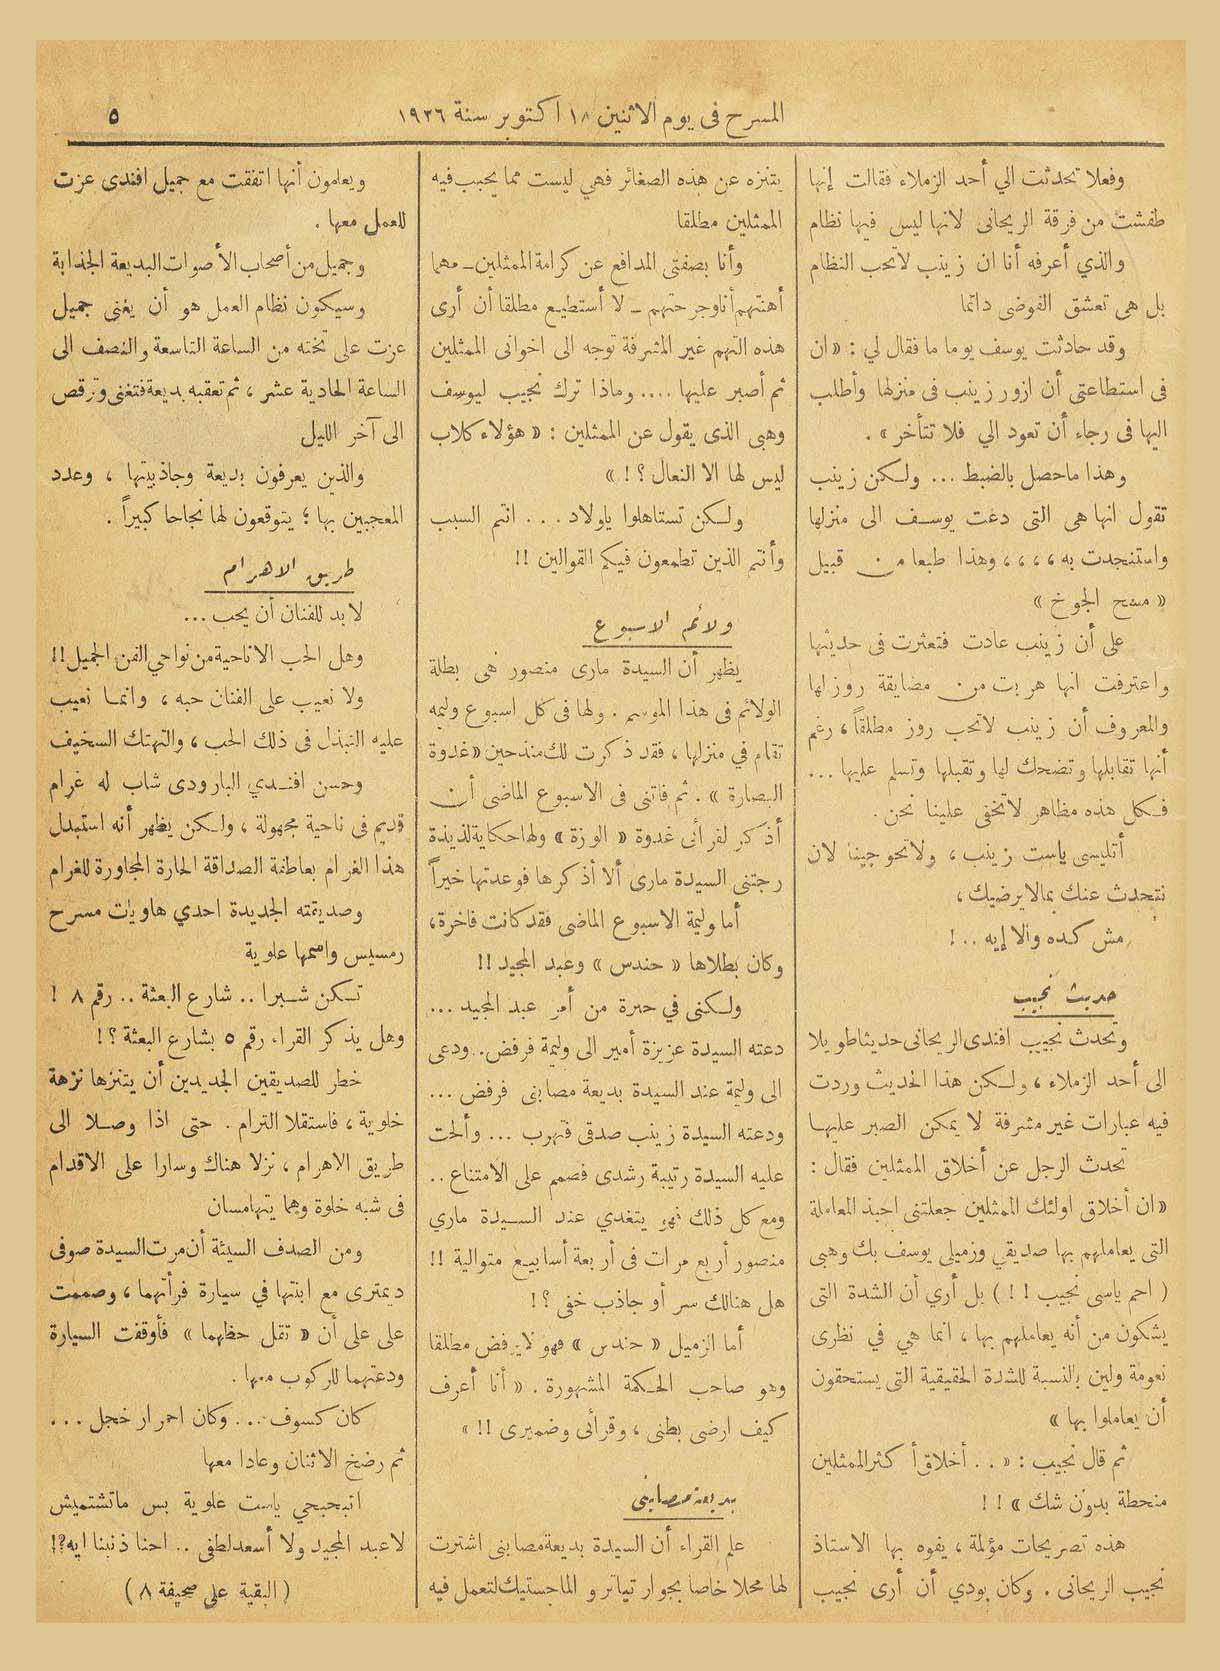 المسرح فى يوم الاثنين ١٨ اكتوبر سنة ١٩٢٦
٥
وفعلا تحدثت الي أحد الزملاء فقالت إنها
طفشت من فرقة الريحانى لانها ليس فيها نظام
والذي أعرفه أنا ان زينب لاتحب النظام
بل هى تعشق الفوضى دائما
وقد حادثت يوسف يوما ما فقال لي : « ان
فى استطاعتى أن ازور زينب فى منزلها وأطلب
اليها فى رجاء أن تعود الي فلا تتأخر » .
وهذا ماحصل بالضبط ... ولكن زينب
تقول انها هى التى دعت يوسف الى منزلها
واستنجدت به ،،،، وهذا طبعا من قبيل
« مسح الجوخ »
على أن زينب عادت فتعثرت فى حديثها
واعترفت انها هربت من مضايقة روز لها
والمعروف أن زينب لاتحب روز مطلقاً ، رغم
أنها تقابلها وتضحك لها وتقبلها وتسلم عليها ...
فكل هذه مظاهر لاتخفى علينا نحن .
أتليسى ياست زينب ، ولاتحوجينا لان
نتحدث عنك بمالايرضيك ،
مش كده والا إيه .. !
حديث نجيب
وتحدث نجيب افندى الريحانى حديثا طويلا
الى أحد الزملاء ، ولكن هذا الحديث وردت
فيه عبارات غير مشرفة لا يمكن الصبر عليها
تحدث الرجل عن أخلاق الممثلين فقال :
« ان أخلاق اولئك الممثلين جعلتنى احبذ المعاملة
التى يعاملهم بها صديقي وزميلى يوسف بك وهبى
( احم ياسى نجيب ! ! ) بل أري أن الشدة التى
يشكون من أنه يعاملهم بها ، انما هي في نظرى
نعومة ولين بالنسبة للشدة الحقيقية التى يستحقون
أن يعاملوا بها »
ثم قال نجيب : « . . أخلاق أكثر الممثلين
منحطة بدون شك » ! !
هذه تصريحات مؤلمة ، يفوه بها الاستاذ
نجيب الريحانى . وكان بودي أن أرى نجيب
يتنزه عن هذه الصغائر فهي ليست مما يحبب فيه
الممثلين مطلقا
وأنا بصفتى المدافع عن كرامة الممثلين ـ مهما
أهنتهم أنا وجرحتهم ـ لا أستطيع مطلقا أن أرى
هذه التهم غير المشرفة توجه الى اخوانى الممثلين
ثم أصبر عليها .... وماذا ترك نجيب ليوسف
وهبى الذى يقول عن الممثلين : « هؤلاء كلاب
ليس لها الا النعال ؟ ! »
ولكن تستاهلوا ياولاد ... انتم السبب
وأنتم الذين تطمعون فيكم القوالين !!
ولائم الاسبوع
يظهر أن السيدة مارى منصور هى بطلة
الولائم فى هذا الموسم . ولها فى كل اسبوع وليمه
تقام في منزلها ، فقد ذكرت لك منذ حين « غدوة
البصارة » . ثم فاتنى فى الاسبوع الماضى أن
أذكر لقرائى غدوة « الوزة » ولها حكاية لذيذة
رجتنى السيدة مارى ألا أذكرها فوعدتها خيراً
أما وليمة الاسبوع الماضى فقد كانت فاخرة ،
وكان بطلاها « حندس » وعبد المجيد !!
ولكنى في حيرة من أمر عبد المجيد ...
دعته السيدة عزيزة أمير الى وليمة فرفض . ودعى
الى وليمة عند السيدة بديعة مصابنى فرفض ...
ودعته السيدة زينب صدقى فتهرب ... وألحت
عليه السيدة رتيبة رشدى فصمم على الامتناع ..
ومع كل ذلك نهو يتغدي عند السيدة ماري
منصور أربع مرات فى أربعة أسابيع متوالية !!
هل هنالك سر أو جاذب خفى ؟ !
أما الزميل « حندس » فهو لايرفض مطلقا
وهو صاحب الحكمة المشهورة . « أنا أعرف
كيف ارضى بطنى ، وقرائى وضميرى !! »
بديعة مصابنى
علم القراء أن السيدة بديعة مصابنى اشترت
لها محلا خاصا بجوار تياترو الماجستيك لتعمل فيه
ويعلمون أنها اتفقت مع جميل افندى عزت
للعمل معها .
وجميل من أصحاب الأصوات البديعة الجذابة
وسيكون نظام العمل هو أن يغنى جميل
عزت على تخته من الساعة التاسعة والنصف الى
الساعة الحادية عشر ، ثم تعقبه بديعة فتغنى وترقص
الى آخر الليل
والذين يعرفون بديعة وجاذبيتها ، وعدد
المعجبين بها ؛ يتوقعون لها نجاحا كبيراً .
طريق الاهرام
لابد للفنان أن يحب ...
وهل الحب الا ناحية من نواحي الفن الجميل !!
ولا نعيب على الفنان حبه ، وانما نعيب
عليه التبذل فى ذلك الحب ، والتهتك السخيف
وحسن افندي البارودى شاب له غرام
قديم فى ناحية مجهولة ، ولكن يظهر أنه استبدل
هذا الغرام بعاطفة الصداقة الحارة المجاورة للغرام
وصديقته الجديدة احدي هاويات مسرح
رمسيس واسمها علوية
تسكن شبرا .. شارع البعثة .. رقم ٨ !
وهل يذكر القراء رقم ٥ بشارع البعثة ؟ !
خطر للصديقين الجديدين أن يتنزها نزهة
خلوية ، فاستقلا الترام . حتى اذا وصلا الى
طريق الاهرام ، نزلا هناك وسارا على الاقدام
فى شبه خلوة وهما يتهامسان
ومن الصدف السيئة أن مرت السيدة صوفى
ديمترى مع ابنتها في سيارة فرأتهما ، وصممت
على على أن « تقل حظهما » فأوقفت السيارة
ودعتهما للركوب معها .
كان كسوف ... وكان احمرار خجل ...
ثم رضخ الاثنان وعادا معها
انبجبحي ياست علوية بس ماتشتميش
لا عبد المجيد ولا أسعد لطفى .. احنا ذنبنا ايه ؟!
( البقية على صحيفة ٨ )